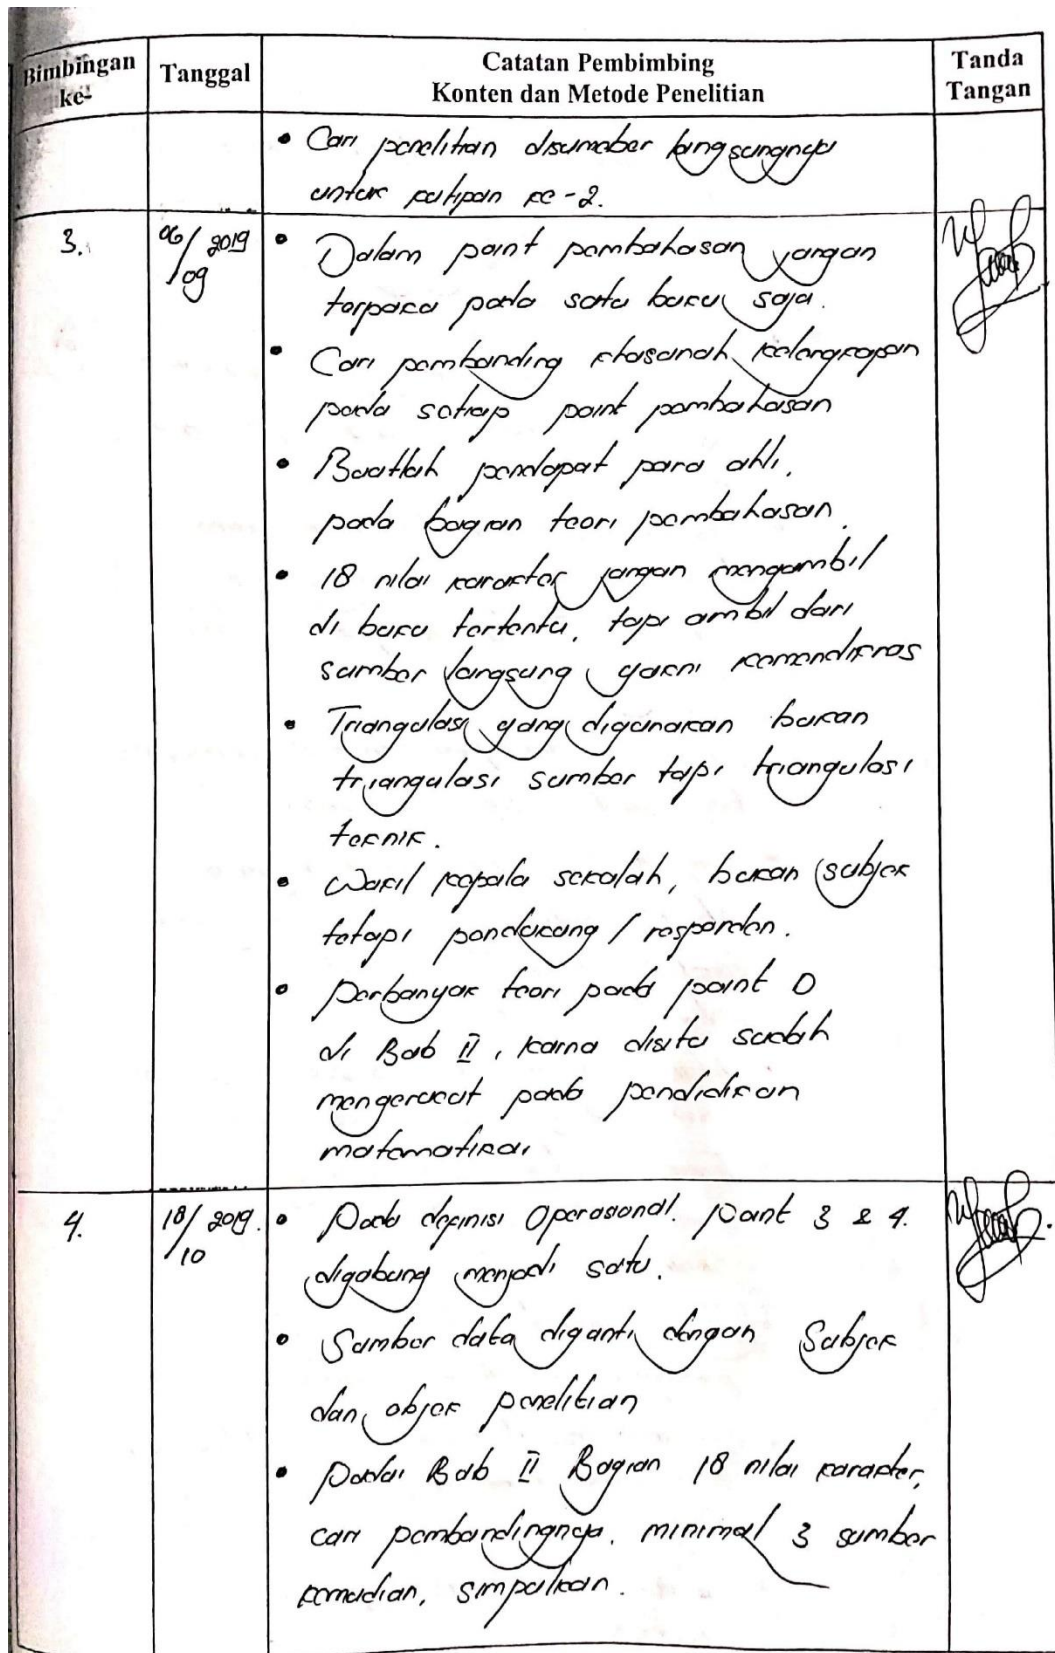 Bimbingan ke-
Tanggal
Catatan Pembimbing
Konten dan Metode Penelitian
Tanda Tangan
• Cari penelitian disumaber langsungnya
untuk kutipan ke-2.
3.
06/09 2019
• Dalam point pembahasan jangan
terpaku pada satu buku saja.
• Cari pembanding khasanah kelengkapan
pada setiap point pembahasan
• Buatlah pendapat para ahli,
pada bagian teori pembahasan.
• 18 nilai karakter jangan mengambil
di buku tertentu, tapi ambil dari
sumber langsung yakni kemendiknas
• Triangulasi yang digunakan bukan
triangulasi sumber tapi triangulasi
teknik.
• Wakil kepala sekolah, bukan subjek
tetapi pendukung / responden.
• Perbanyak teori pada point D
di Bab II, karna disitu sudah
mengerucut pada pendidikan
matematika.
4.
18/10 2019.
• Pada definisi Operasional. point 3 & 4.
digabung menjadi satu.
• Sumber data diganti dengan Subjek
dan objek penelitian
• Pada Bab II Bagian 18 nilai karakter,
cari pembandingnya. minimal 3 sumber
kemudian, simpulkan.